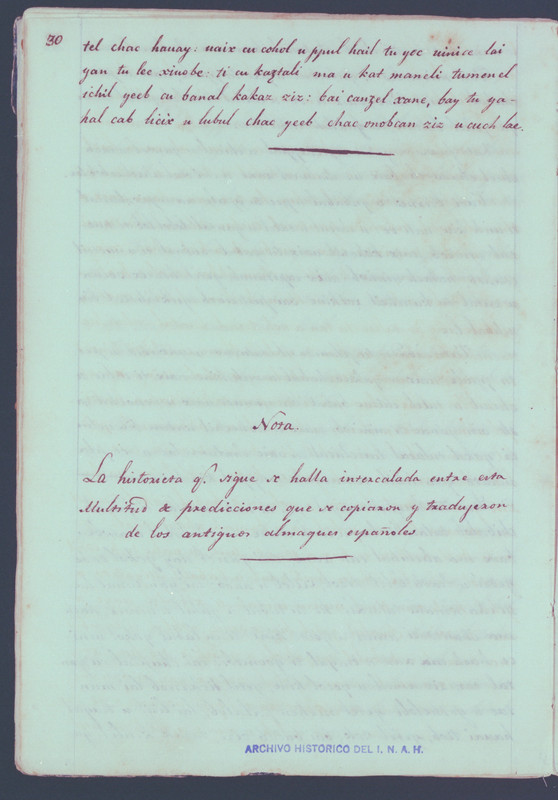 30
tel chac hauay: uaix cu cohol u ppul hail tu yoc uinice lai
yan tu lec xinobe: ti cu kaztali ma u kat manebi tumenel
ichil yeeb cu banal kakaz ziz: bai canzel xane, bay tu ya-
hal cab licix u lubul chac yeeb chac onobcan ziz u cuch lae.
Nota.
La historieta q.e sigue se halla intercalada entre esta
Multitud de predicciones que se copiaron y tradujeron
de los antiguos almaques españoles
ARCHIVO HISTORICO DEL I. N. A. H.